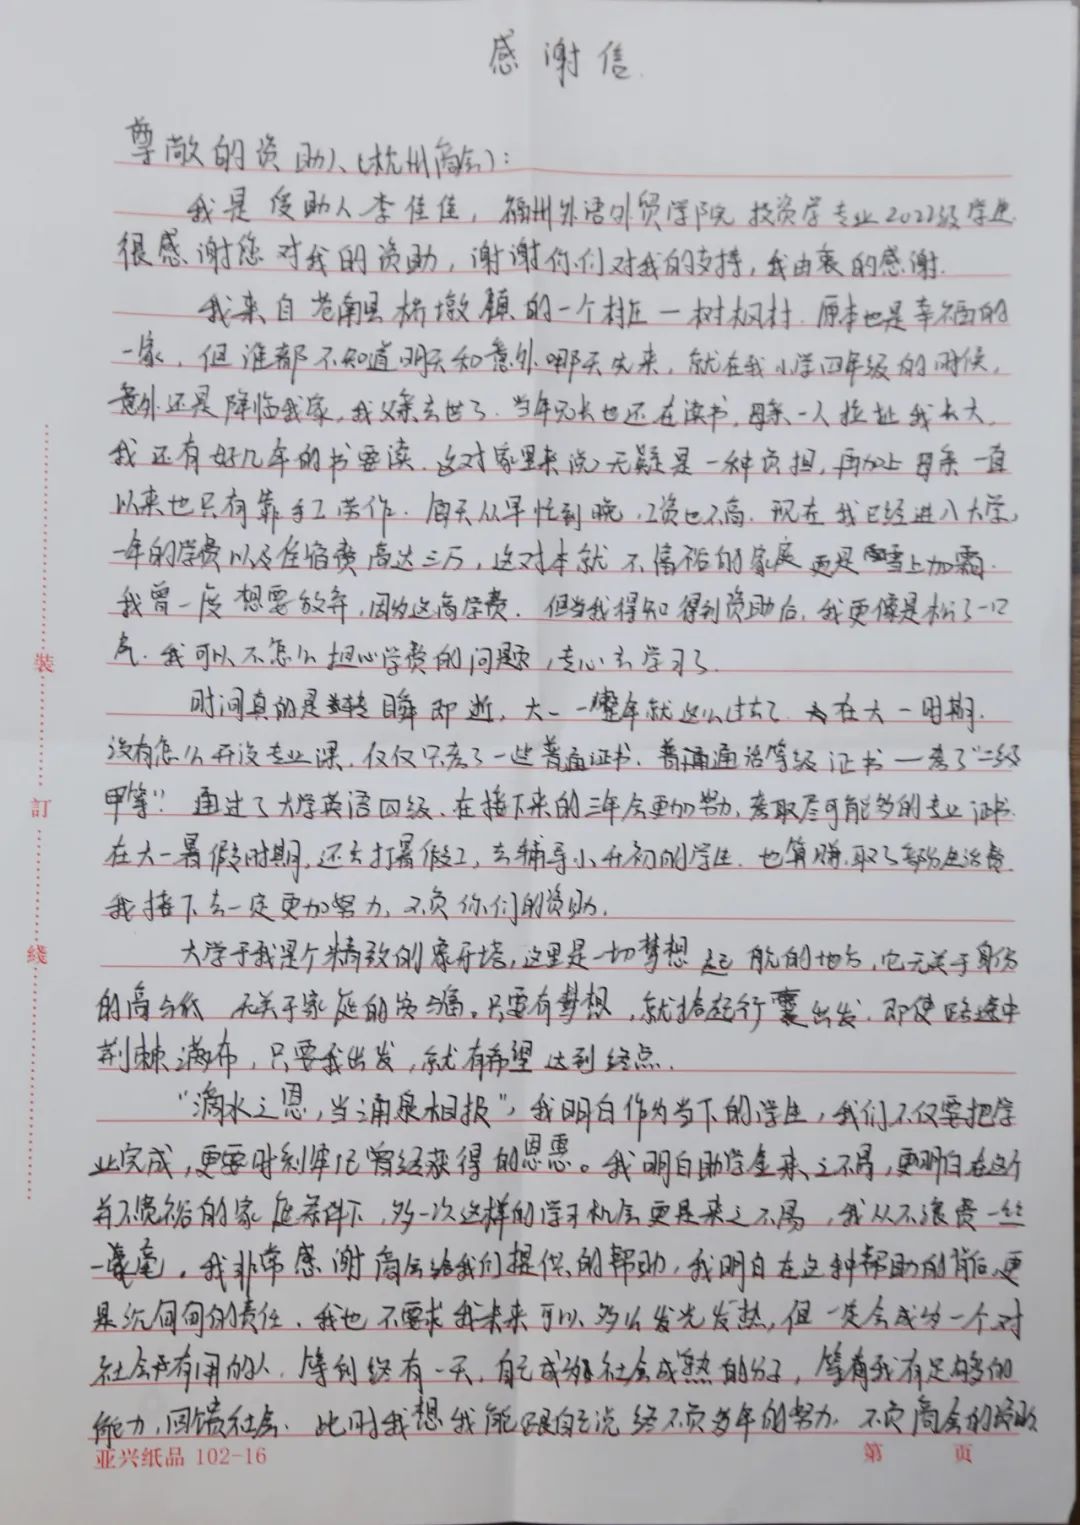 感谢信
尊敬的资助人(杭州商会):
我是受助人李佳佳,福州外语外贸学院投资学专业2022级学生.
很感谢您对我的资助,谢谢你们对我的支持,我由衷的感谢.
我来自苍南县桥墩镇的一个村庄一树枫村.原本也是幸福的
一家,但谁都不知道明天和意外哪天先来,就在我小学四年级的时候,
意外还是降临我家,我父亲去世了.当年兄长也还在读书,母亲一人拉扯我长大,
我还有好几年的书要读.这对家里来说,无疑是一种负担,再加上母亲一直
以来也只有靠手工劳作.每天从早忙到晚,工资也不高.现在我已经进入大学,
一年的学费以及住宿费高达三万,这对本就不富裕的家庭更是雪上加霜.
我曾一度想要放弃,因为这高学费.但当我得知得到资助后,我更像是松了一口
气.我可以不怎么担心学费的问题,专心去学习了.
时间真的是转瞬即逝,大一一整年就这么过去了.在大一时期.
没有怎么开设专业课,仅仅只考了一些普通证书.普通话等级证书一考了"二级
甲等".通过了大学英语四级.在接下来的三年会更加努力,考取尽可能多的专业证书.
在大一暑假时期,还去打暑假工,去辅导小升初的学生.也算赚取了部分生活费.
我接下去一定更加努力,不负你们的资助.
大学于我是个精致的象牙塔,这里是一切梦想起航的地方,它无关于身份
的高与低 无关于家庭的贫与富。只要有梦想,就拾起行囊出发.即使路途中
荆棘满布,只要我出发,就有希望达到终点.
"滴水之恩,当涌泉相报",我明白作为当下的学生,我们不仅要把学
业完成,更要时刻牢记曾经获得的恩惠。我明白助学金来之不易,更明白在这个
并不宽裕的家庭条件下,多一次这样的学习机会更是来之不易,我从不浪费一丝
一毫。我非常感谢商会给我们提供的帮助,我明白在这种帮助的背后,更
是沉甸甸的责任.我也不要求我未来可以多么发光发热,但一定会成为一个对
社会有用的人.等到终有一天,自己成为社会成熟的分子,等有我有足够的
能力,回馈社会.此时我想我能跟自己说终不负多年的努力.不负商会的资助
裝
訂
綫
亚兴纸品 102-16
第 页